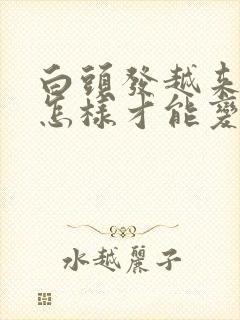 白頭發越来
怎樣才能變
水越麗子